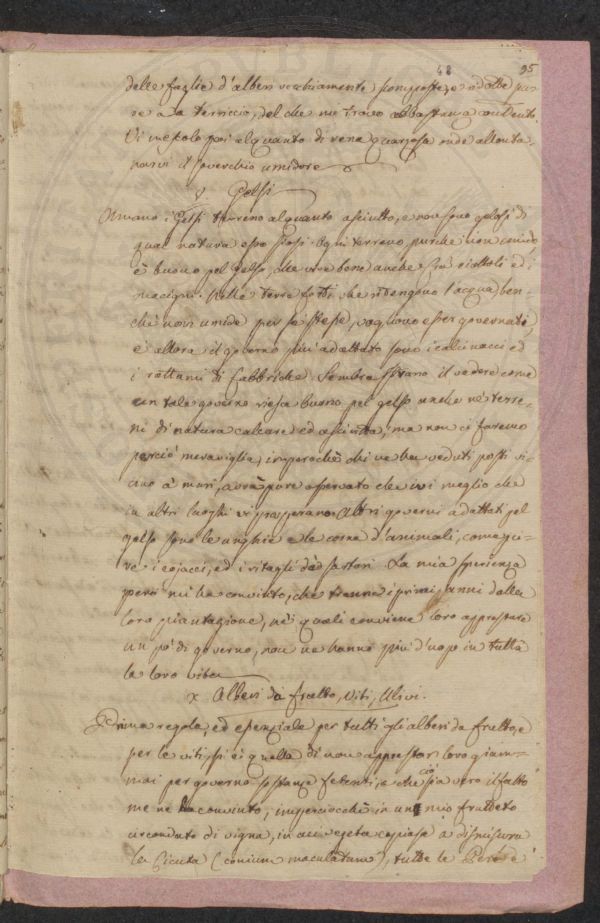 48 95
delle foglie d'alberi vecchiamente scomposte, e ridotte pu-
re a terriccio, del che me trovo abbastanza contento.
Vi mescolo poi alquanto di rena quarzosa onde allonta-
narvi il soverchio umidore
Gelsi
Amano i Gelsi terreno alquanto asciutto, e non sono gelosi di
qual natura esso siasi. Ogni terreno, purchè non umido
è buono pel gelso, che vive bene anche frà ciottoli ed i
macigni. Nelle terre forti, che ritengono l'acqua, ben-
chè non umide per se stesse, vogliono esser governati,
e allora il governo più adattato sono i calcinacci ed
i rottami di fabbriche. Sembra strano il vedere come
un tale governo riesca buono pel gelso anche ne' terre-
ni di natura calcare ed asciutta, ma non ci faremo
perciò meraviglia, imperochè chi ne ha veduti posti vi-
cino à muri, avrà pure osservato che ivi meglio che
in altri luoghi vi prosperano. Altri governi adattati pel
gelso sono le unghie e le corna d'animali, come pu-
re i cojacci, ed i ritagli dà sartori. La mia sperienza
però mi ha convinto, che tranne i primi anni dalla
loro piantagione, ne' quali conviene loro apprestare
un pò di governo, non ne hanno più d'uopo in tutta
la loro vita
x Alberi da frutto, Viti, Ulivi.
Prima regola, ed essenziale per tutti gli alberi da frutto, e
per le viti si è quella di non apprestar loro giam-
mai per governo sostanze fetenti, e che ciò sia vero il fatto
me ne ha convinto, imperciocchè in un mio frutteto
circondato di vigna, in cui vegeta copiosa a dismisura
la Cicuta (conium maculatum), tutte le Pere